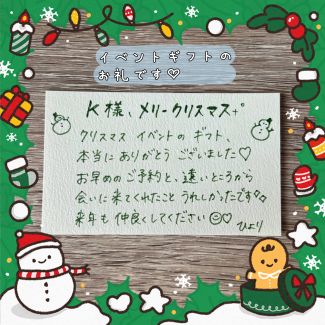 イベントギフトの
お礼です♡
K様、メリークリスマス
クリスマスイベントのギフト、
本当にありがとうございました♡
お早めのご予約と、遠いところから
会いに来てくれたこと うれしかったです
来年も仲良くしてください☺♡
ひより